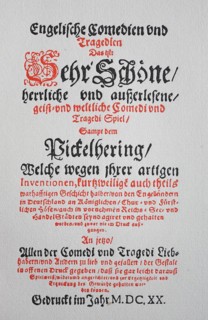 Engelische Comedien vnd
Tragedien
Das ist:
Sehr Schöne/
herrliche vnd außerlesene/
geist- vnd weltliche Comedi vnd
Tragedi Spiel/
Sampt dem
Pickelhering/
Welche wegen jhrer artigen
Inventionen, kurtzweilige auch theils
warhafftigen Geschicht halber/ von den Engelländern
in Deutschland an Königlichen/ Chur- vnd Fürst-
lichen Höfen/ auch in vornehmen Reichs- See- vnd
Handel Städten seynd agiret vnd gehalten
worden/ vnd zuvor nie im Druck auß-
gangen.
An jetzo/
Allen der Comedi vnd Tragedi Lieb-
habern/ vnd Andern zu lieb vnd gefallen/ der Gestalt
in offenen Druck gegeben/ daß sie gar leicht darauß
Spielweiß widerumb angerichtet/ vnd zur Ergetzligkeit vnd
Erquickung des Gemüths gehalten wer-
den können.
Gedruckt im Jahr M.DC.XX.